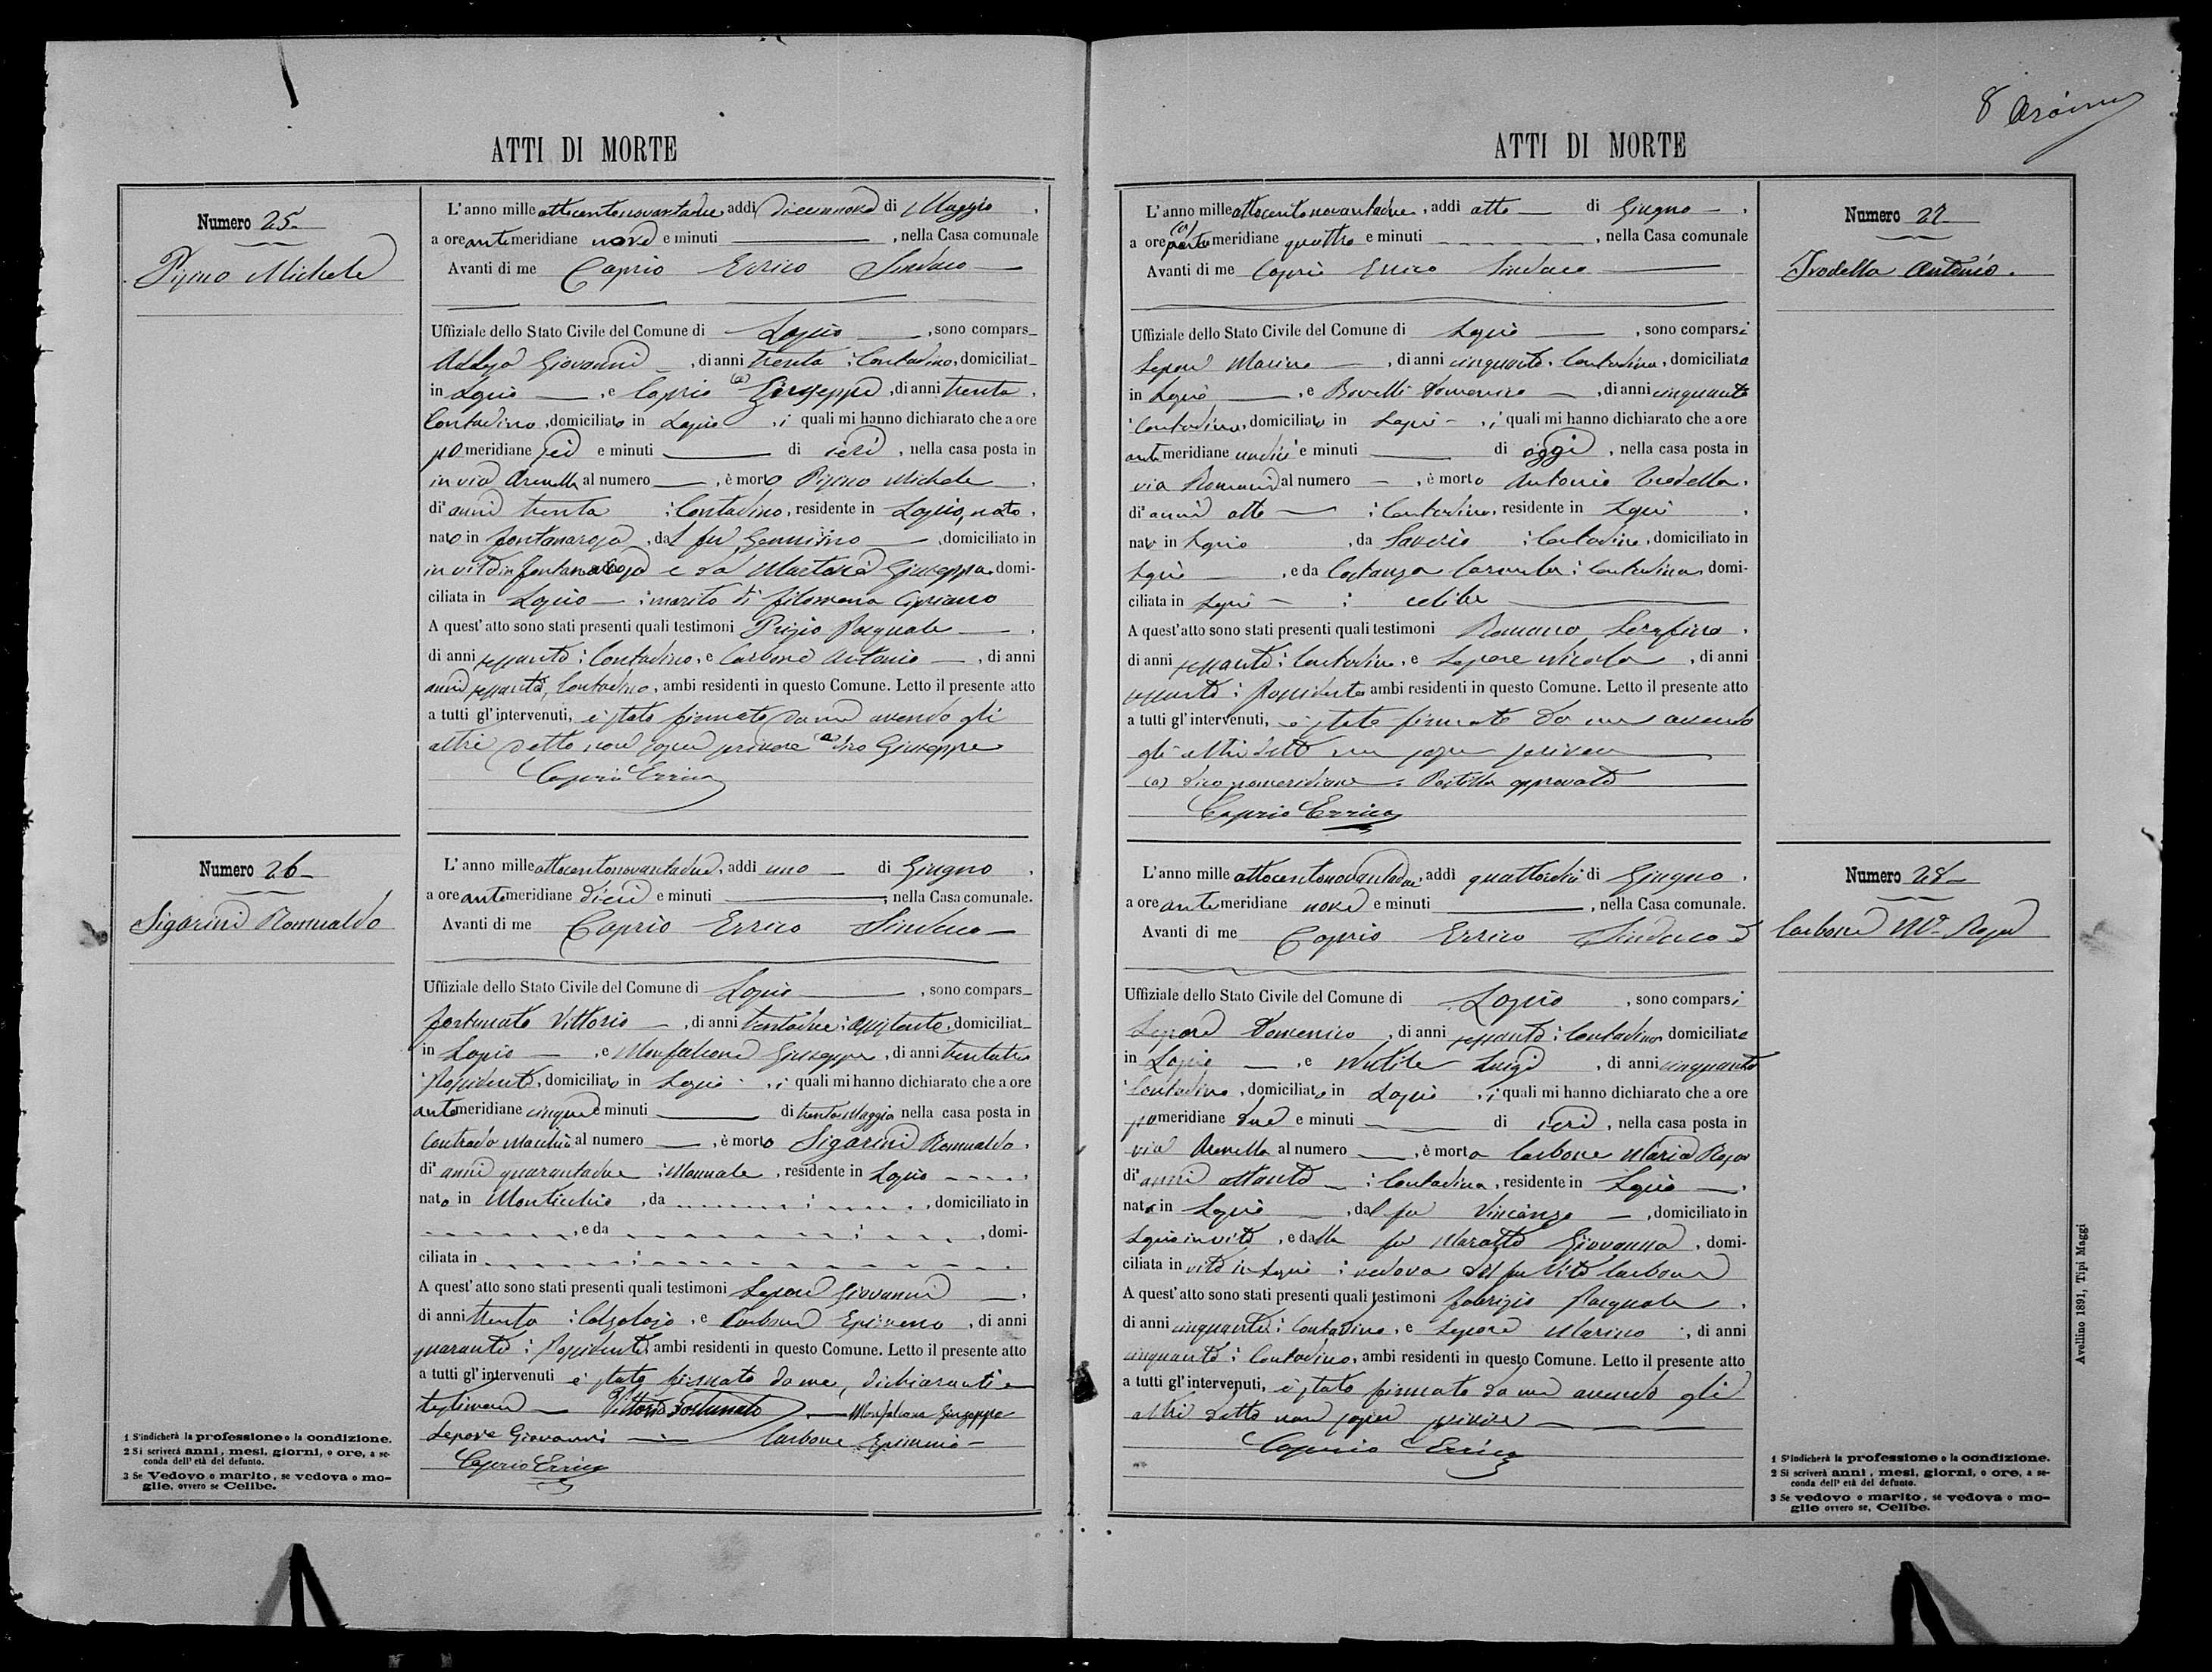 ATTI DI MORTE
Numero 25
Pisano Michele
L'anno milleottocentonovantadue, addì diecinnove di Maggio,
a ore antimeridiane nove e minuti, nella Casa comunale
Avanti di me Caprio Errico Sindaco
Uffiziale dello Stato Civile del Comune di Lapio, sono compars
Giovanni, di anni trenta, Contadino, domiciliat
in Lapio, e Caprio (a) Giuseppe, di anni trenta,
Contadino, domiciliato in Lapio, i quali mi hanno dichiarato che a ore
pomeridiane sei e minuti di ieri, nella casa posta in
in via Arenella al numero, è morto Michele
di anni trenta, Contadino, residente in Lapio, nato,
nato in Fontanarosa, dal fu, domiciliato in
in vita in Fontanarosa e da Giuseppa, domi-
ciliata in Lapio; marito di Filomena Cipriano
A quest'atto sono stati presenti quali testimoni Pasquale,
di anni sessanta; Contadino, e Carbone Antonio, di anni
anni sessanta, Contadino, ambi residenti in questo Comune. Letto il presente atto
a tutti gl'intervenuti, è stato firmato da me avendo gli
altri detto non saper scrivere (a) dico Giuseppe
Caprio Errico
Numero 26
Sigarini Romualdo
L'anno milleottocentonovantadue, addì uno di Giugno,
a ore antimeridiane dieci e minuti, nella Casa comunale.
Avanti di me Caprio Errico Sindaco
Uffiziale dello Stato Civile del Comune di Lapio, sono compars
Fortunato Vittorio, di anni trentadue;, domiciliat
in Lapio, e Monfalcone Giuseppe, di anni trentatre
Possidente, domiciliato in Lapio, i quali mi hanno dichiarato che a ore
antimeridiane cinque e minuti di trenta Maggio nella casa posta in
Contrada Macchia al numero, è morto Sigarini Romualdo,
di anni quarantadue; Manuale, residente in Lapio
nato in Monticchio, da, domiciliato in
, e da, domi-
ciliata in
A quest'atto sono stati presenti quali testimoni Lepore Giovanni,
di anni trenta; Calzolajo, e Carbone, di anni
quaranta; Possidente, ambi residenti in questo Comune. Letto il presente atto
a tutti gl'intervenuti è stato firmato da me, dichiaranti e
testimoni Vittorio Fortunato Monfalcone Giuseppe
Lepore Giovanni Carbone
Caprio Errico
1 S'indicherà la professione o la condizione.
2 Si scriverà anni, mesi, giorni, o ore, a se-
conda dell'età del defunto.
3 Se Vedovo o marito, se vedova o mo-
glie, ovvero se Celibe.
8
ATTI DI MORTE
Numero 27
Trodella Antonio.
L'anno milleottocentonovantadue, addì otto di Giugno,
a ore (a) meridiane quattro e minuti, nella Casa comunale
Avanti di me Caprio Errico Sindaco
Uffiziale dello Stato Civile del Comune di Lapio, sono comparsi
Lepore Marino, di anni cinquanta, Contadino, domiciliato
in Lapio, e Domenico, di anni cinquanta
Contadino, domiciliato in Lapio, i quali mi hanno dichiarato che a ore
antimeridiane undici e minuti di oggi, nella casa posta in
via al numero, è morto Antonio Trodella,
di anni otto; Contadino, residente in Lapio,
nato in Lapio, da Saverio; Contadino, domiciliato in
Lapio, e da Costanza; Contadina, domi-
ciliata in Lapio; celibe
A quest'atto sono stati presenti quali testimoni Romano Serafino,
di anni sessanta; Contadino, e Lepore Nicola, di anni
sessanta; Possidente, ambi residenti in questo Comune. Letto il presente atto
a tutti gl'intervenuti, è stato firmato da me avendo
gli altri detto non saper scrivere
(a) dico pomeridiane. Postilla approvata
Caprio Errico
Numero 28
Carbone Ma Rosa
L'anno milleottocentonovantadue, addì quattordici di Giugno,
a ore antimeridiane nove e minuti, nella Casa comunale.
Avanti di me Caprio Errico Sindaco
Uffiziale dello Stato Civile del Comune di Lapio, sono comparsi
Lepore Domenico, di anni sessanta; Contadino, domiciliato
in Lapio, e Luigi, di anni cinquanta
Contadino, domiciliato in Lapio, i quali mi hanno dichiarato che a ore
pomeridiane due e minuti di ieri, nella casa posta in
via Arenella al numero, è morta Carbone Maria Rosa
di anni ottanta; Contadina, residente in Lapio,
nata in Lapio, dal fu Vincenzo, domiciliato in
Lapio in vita, e dalla fu Giovanna, domi-
ciliata in vita in Lapio; vedova del fu Vito Carbone
A quest'atto sono stati presenti quali testimoni Fabrizio Pasquale,
di anni cinquanta; Contadino, e Lepore Marino, di anni
cinquanta; Contadino, ambi residenti in questo Comune. Letto il presente atto
a tutti gl'intervenuti, è stato firmato da me avendo gli
altri detto non saper scrivere
Caprio Errico
1 S'indicherà la professione o la condizione.
2 Si scriverà anni, mesi, giorni, o ore, a se-
conda dell'età del defunto.
3 Se vedovo o marito, se vedova o mo-
glie ovvero se, Celibe.
Avellino 1891, Tipi Maggi